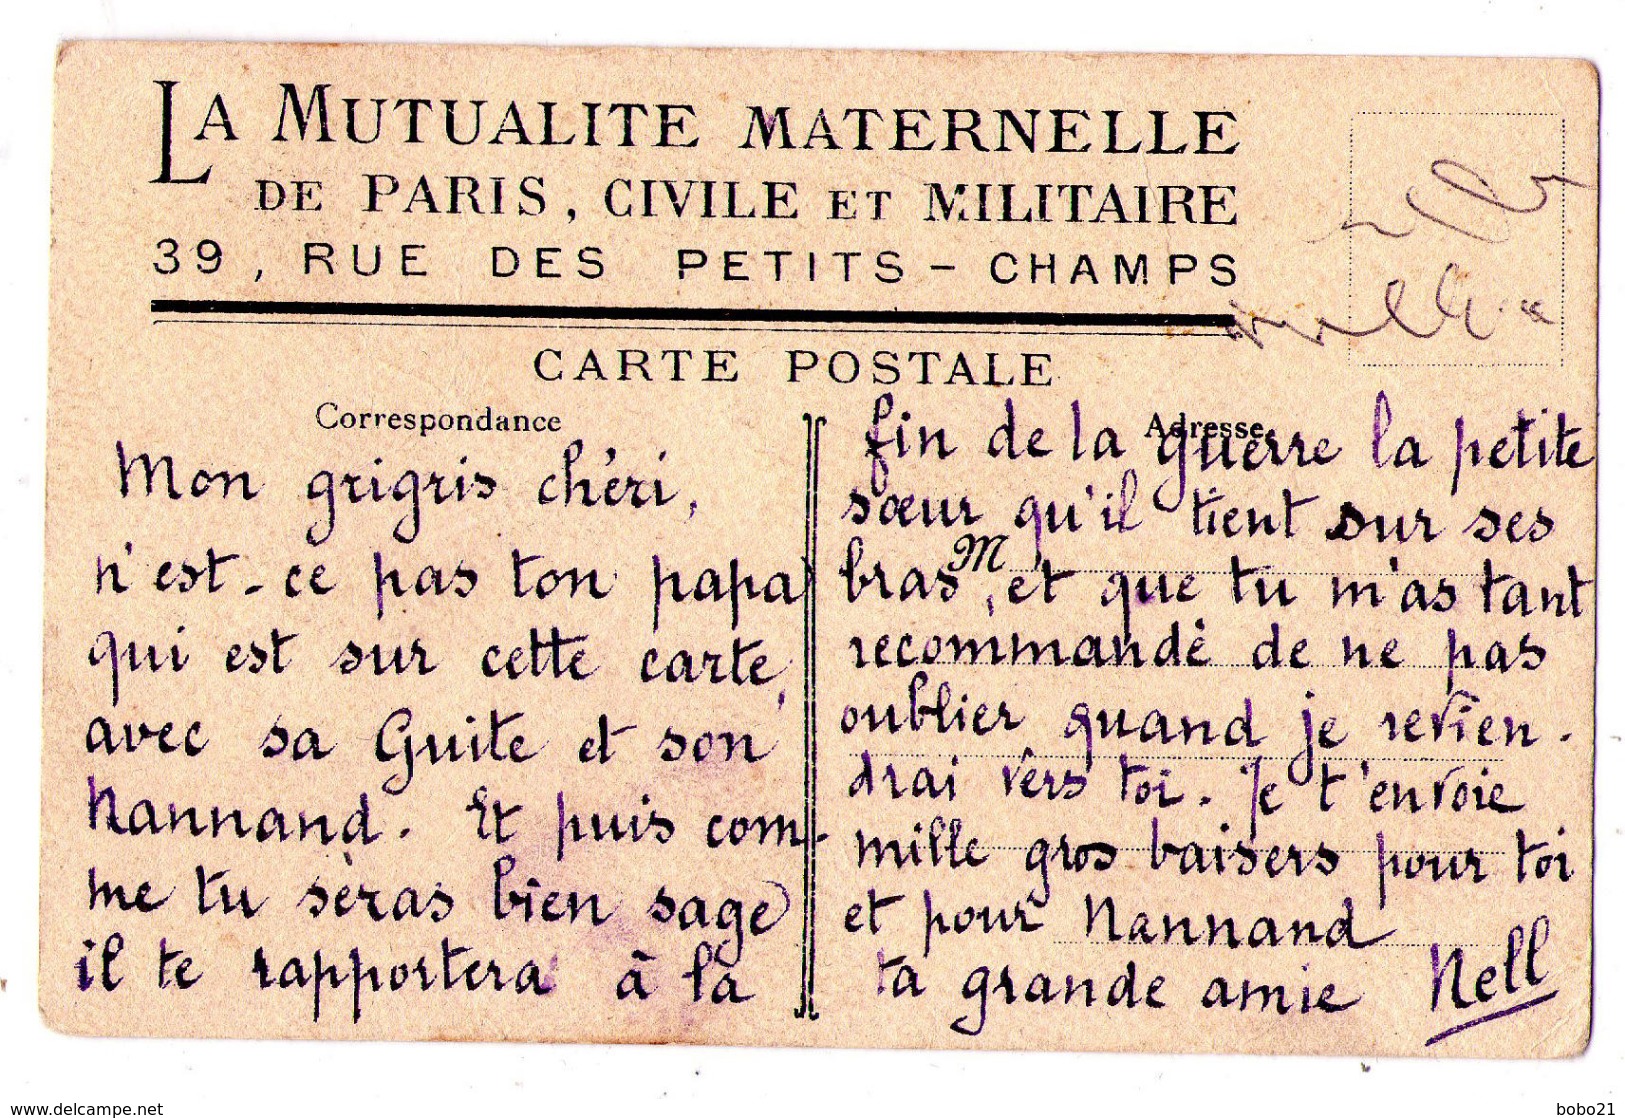 LA MUTUALITE MATERNELLE
DE PARIS, CIVILE ET MILITAIRE
39, RUE DES PETITS-CHAMPS
CARTE POSTALE
Correspondance
Mon grigris chéri,
n'est-ce pas ton papa
qui est sur cette carte,
avec sa Guite et son
Nannand. Et puis com-
me tu seras bien sage
il te rapportera à la
Adresse
fin de la guerre la petite
sœur qu'il tient sur ses
M
bras, et que tu m'as tant
recommandé de ne pas
oublier quand je revien-
drai vers toi. Je t'envoie
mille gros baisers pour toi
et pour Nannand
ta grande amie Nell
www.delcampe.net
bobo21